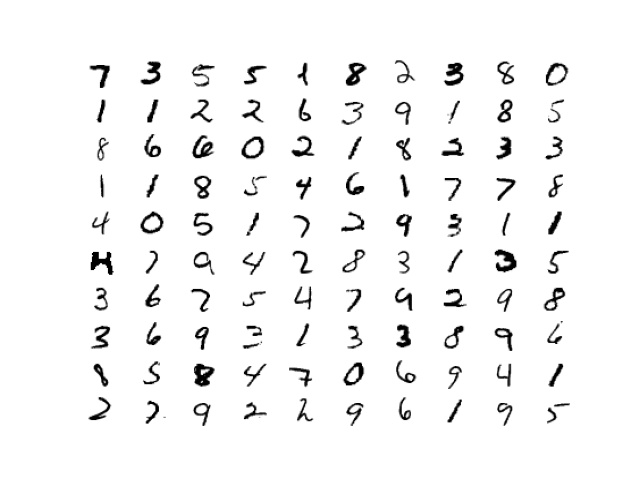 7 3 5 5 1 8 2 3 8 0
1 1 2 2 6 3 9 1 8 5
8 6 6 0 2 1 8 2 3 3
1 1 8 5 4 6 1 7 7 8
4 0 5 1 7 2 9 3 1 1
4 7 9 4 2 8 3 1 3 5
3 6 7 5 4 7 9 2 9 8
3 6 9 3 1 3 3 8 9 6
8 5 8 4 7 0 6 9 4 1
2 7 9 2 2 9 6 1 9 5